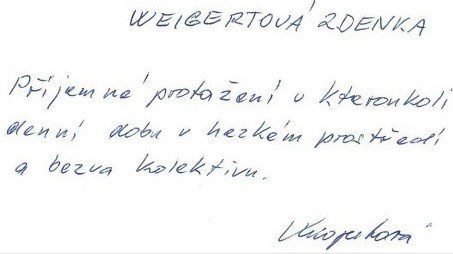 WEIGERTOVÁ ZDENKA
Příjemné protažení v kteroukoli
denní dobu v hezkém prostředí
a bezva kolektivu.